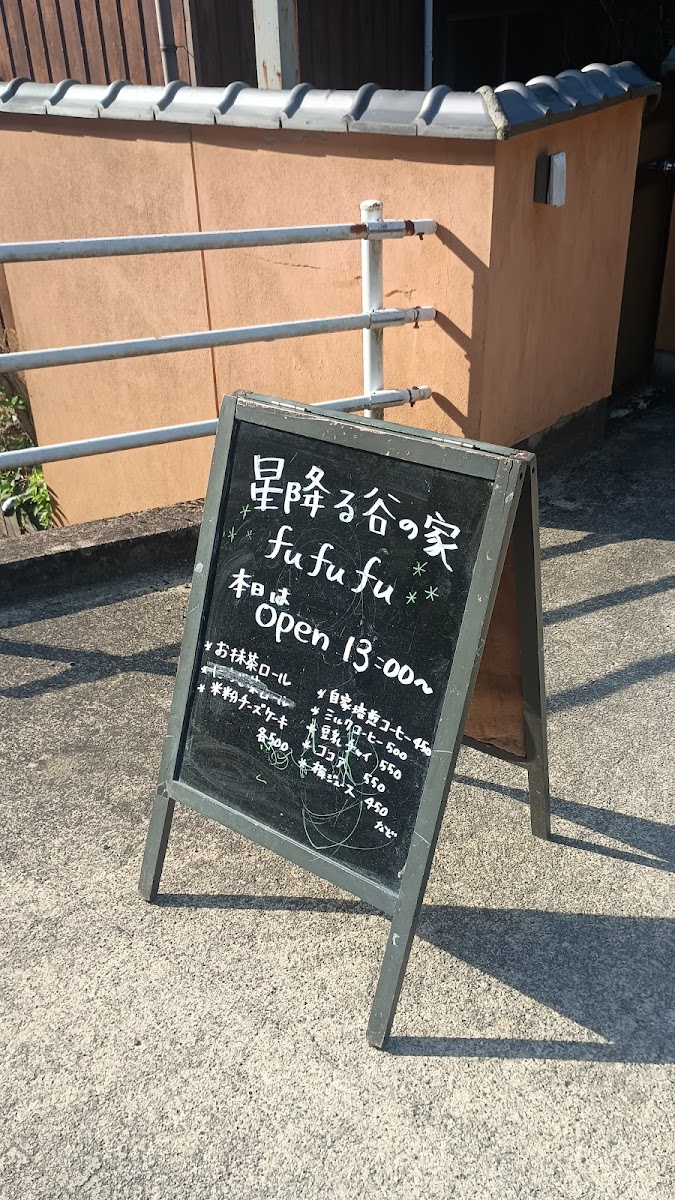 星降る谷の家
fufufu
本日は
open 13:00〜
*お抹茶ロール
*米粉チーズケーキ
各500
*自家焙煎コーヒー 450
*ミルクコーヒー 500
*豆乳チャイ 550
*ココア 550
*梅ジュース 450
など